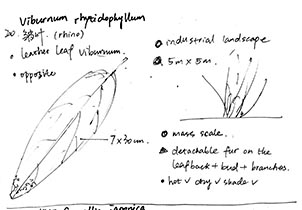 Viburnum rhytidophyllum
20. 皱叶 (rhino)
• leather leaf viburnum.
• opposite
7 x 20 cm.
industrial landscape
5m x 5m.
mass scale.
detachable fur on the
leaf back + bud + branches.
• hot ✓ dry ✓ shade ✓